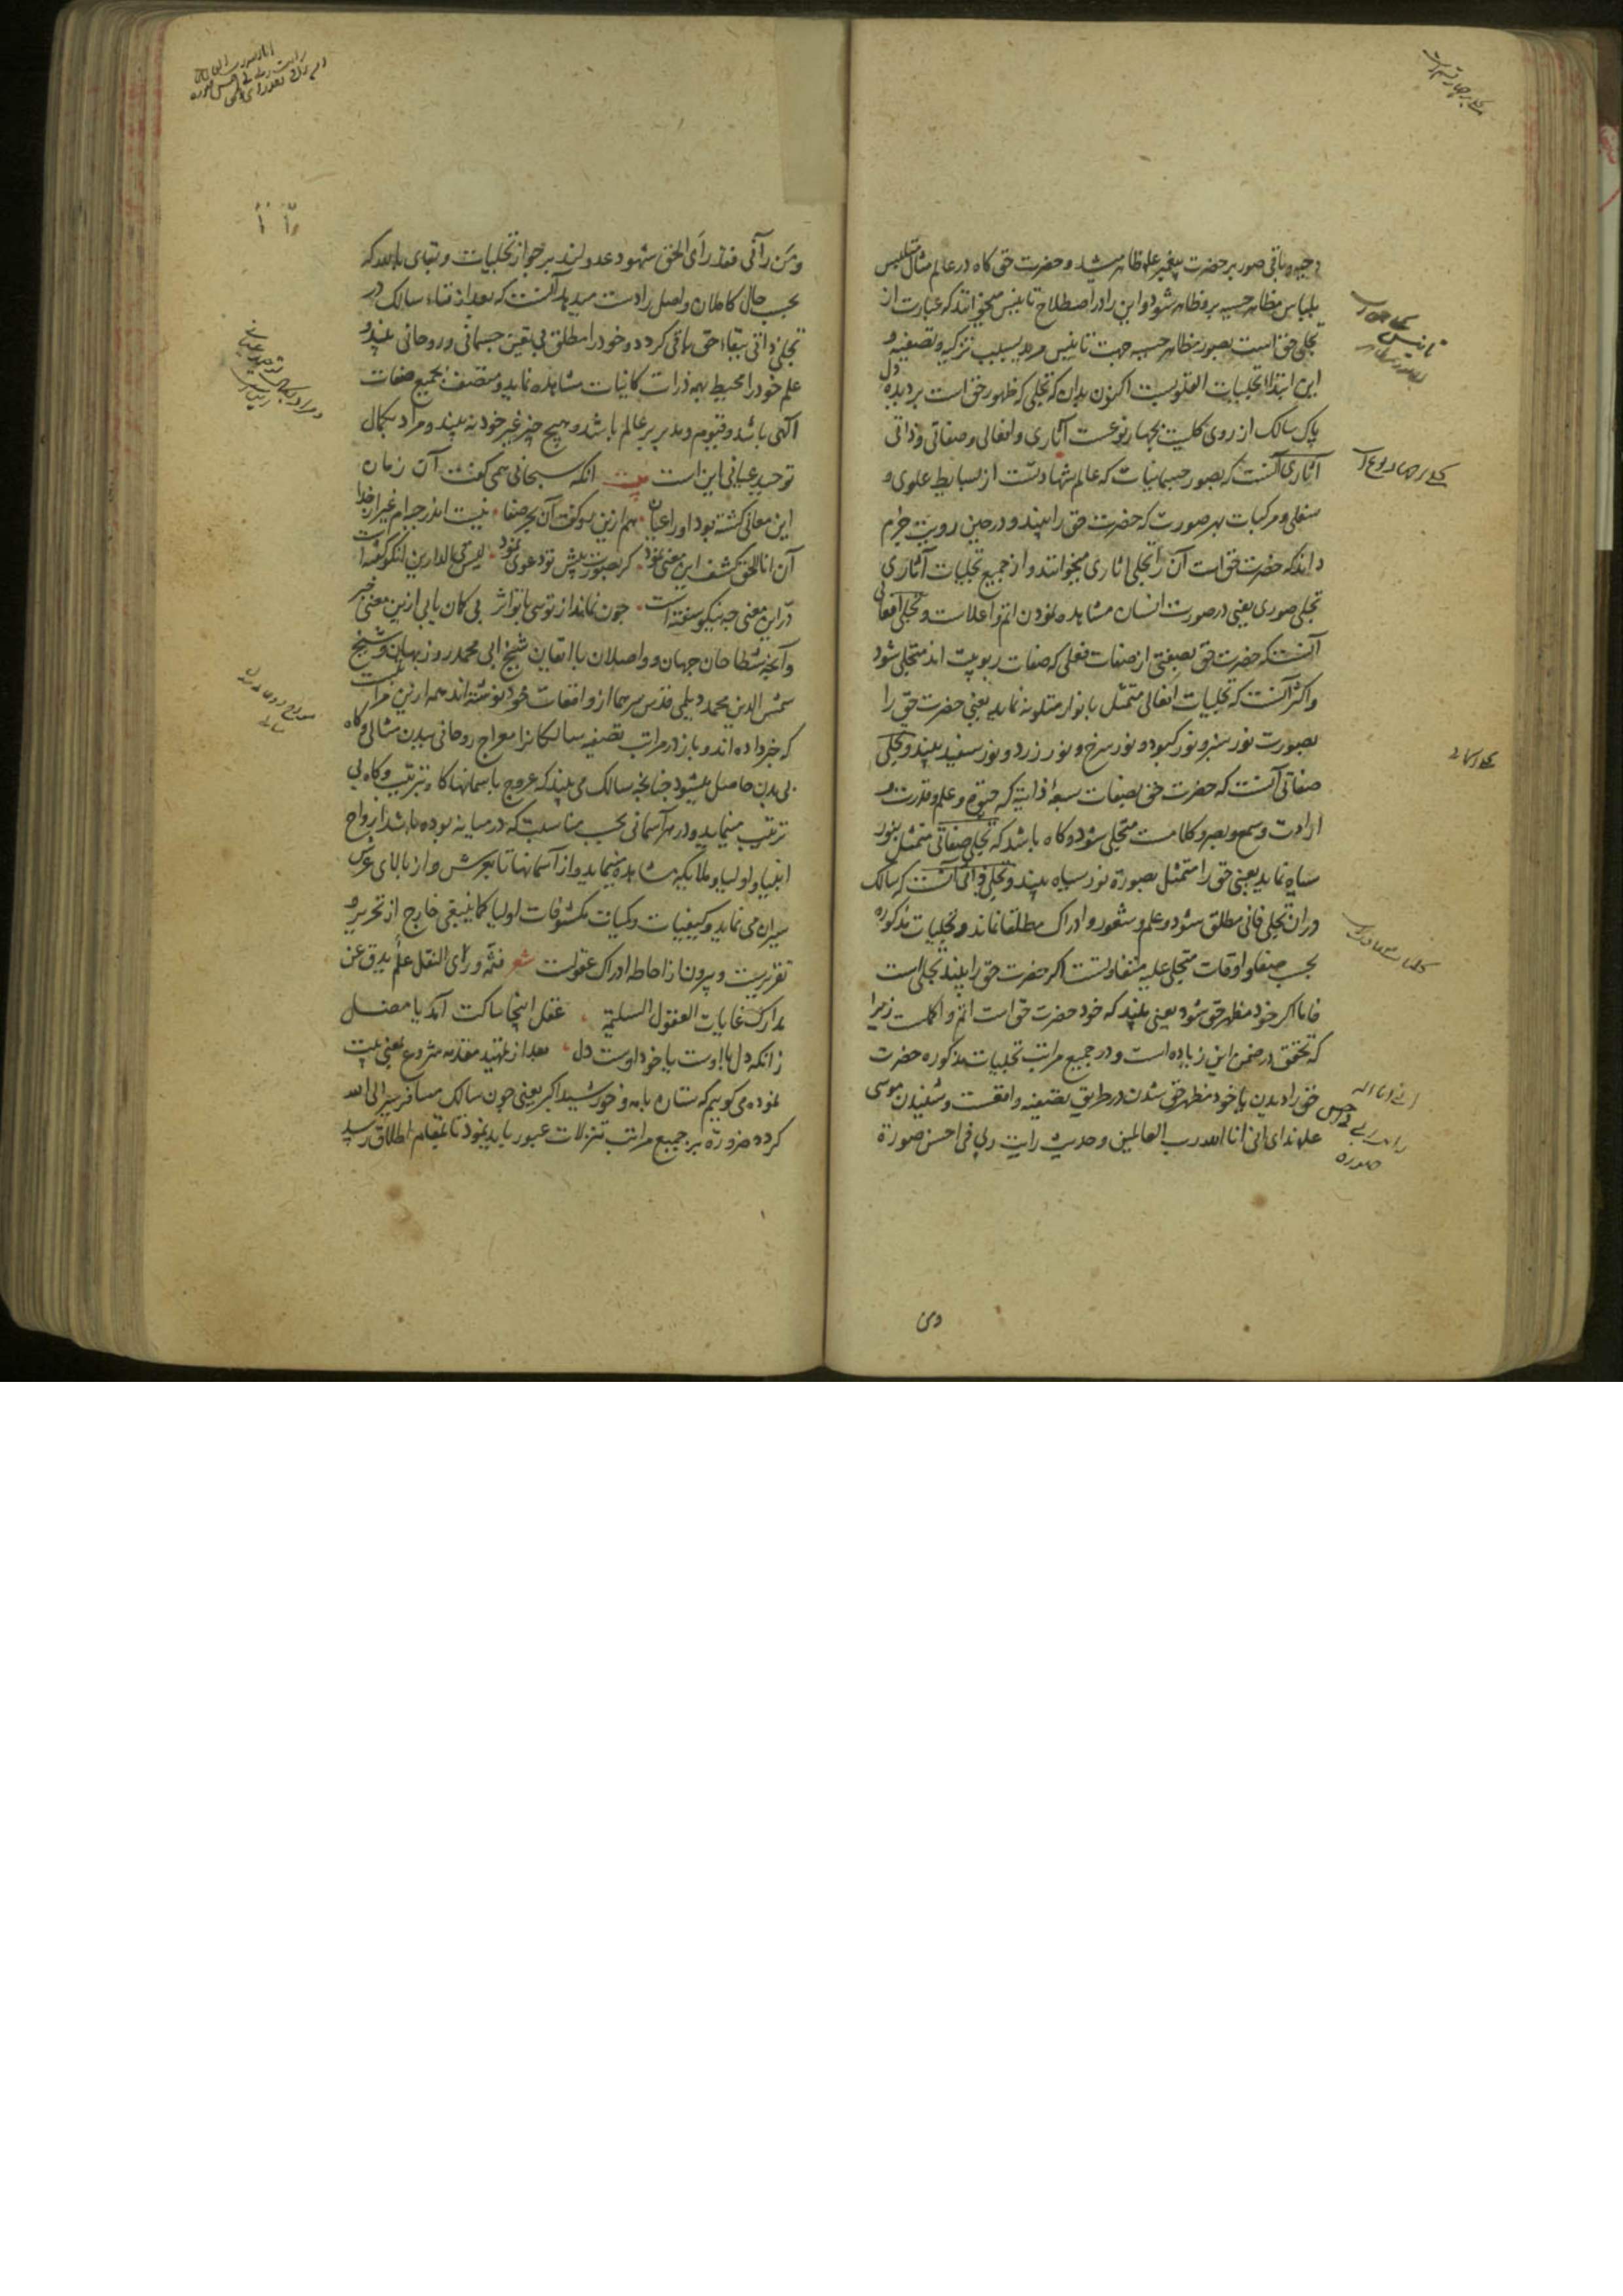 دحیه و باقی صور بر حضرت پیغمبر علم ظاهر میشد و حضرت حق کاه در عالم مثال متلبس
بلباس مظاهر حسیه برو ظاهر شود و این را در اصطلاح تانیس میخوانند که عبارت از
تجلی حق است بصور مظاهر حسیه جهت تانیس مرید بسبب تزکیه و تصفیه و
این ابتدا تجلیات القلوبست اکنون بدان که تجلی که ظهور حق است بر دیده دل
پاک سالک از روی کلیت بچهار نوعست آثاری و افعالی و صفاتی و ذاتی
آثاری آنست که بصور جسمانیات که عالم شهادتست از بسایط علوی و
سفلی و مرکبات بهر صورت که حضرت حق را بیند و در حین رویت جزم
داند که حضرت حق است آن را تجلی اثاری میخوانند و از جمیع تجلیات آثاری
تجلی صوری یعنی در صورت انسان مشاهده نمودن اتم و اعلاست و تجلی افعالی
آنست که حضرت حق بصفتی از صفات فعلی که صفات ربوبیت اند متجلی شود
و اکثر آنست که تجلیات افعالی متمثل بانوار متلونه نماید یعنی حضرت حق را
بصورت نور سبز و نور کبود و نور سرخ و نور زرد و نور سفید بیند و تجلی
صفاتی آنست که حضرت حق بصفات سبعه ذاتیه که حیوة و علم و قدرت و
ارادت و سمع و بصر و کلامست متجلی شود و کاه باشد که تجلی صفاتی متمثل بنور
سیاه نماید یعنی حق را متمثل بصورة نور سیاه بیند و تجلی ذاتی آنست که سالک
در ان تجلی فانی مطلق شود و علم و شعور و ادراک مطلقا نماند و تجلیات مذکوره
بحسب صفا و اوقات متجلی علیه متفاوتست اکر حضرت حق را بیند تجلی است
فاما اکر خود مظهر حق شود یعنی بیند که خود حضرت حق است اتم و اکملست زیرا
که تحقق در ضمن این زیاده است و در جمیع مراتب تجلیات مذکوره حضرت
حق را دیدن یا خود مظهر حق شدن در طریق تصفیه واقعست و شنیدن موسی
علم ندای انی انا الله رب العالمین و حدیث رایت ربی فی احسن صورة
ومن
ومن رآنی فقد رأی الحق شهود عدولند بر جواز تجلیات و بقای بالله که
بحسب حال کاملان واصل را دست میدهد آنست که بعد از فناء سالک در
تجلی ذاتی ببقاء حق باقی کردد و خود را مطلق بی تعین جسمانی و روحانی بیند و
علم خود را محیط بهمه ذرات کاینات مشاهده نماید و متصف بجمیع صفات
الهی باشد و قیوم و مدبر عالم باشد و هیچ چیز غیر خود نه بیند و مراد بکمال
توحید عیانی این است بیت انکه سبحانی همی کفت آن زمان
این معانی کشته بود او را عیان هم ازین رو کفت آن بحر صفا نیست اندر جبه ام غیر از خدا
آن انا الحق کشف این معنی نمود کر بصورت پیش تو دعوی نمود لیس فی الدارین انکو کفته است
در این معنی چه نیکو سفته است چون نماند از توسی با تو اثر بی کمان یابی ازین معنی خبر
و آنچه شطاحان جهان و واصلان با ایقان شیخ ابی محمد روزبهان و شیخ
شمس الدین محمد دیلمی قدس سرهما از واقعات خود نوشته اند همه ازین مراتب
که خبر داده اند و باز در مراتب تصفیه سالکانرا معراج روحانی ببدن مثالی و کاه
بی بدن حاصل میشود چنانچه سالک می بیند که عروج باسمانها کاه بترتیب و کاه بی
ترتیب مینماید و در هر آسمانی بحسب مناسبت که در میانه بوده باشد ارواح
انبیا و اولیا و ملایکه مشاهده مینماید و از آسمانها تا بعرش و از بالای عرش
سیران می نماید و کیفیات و کمیات مکشوفات اولیا کما ینبغی خارج از تحریر و
تقریرست و بیرون از احاطه ادراک عقولست شعر فثم وراء النقل علم یدق عن
مدارک غایات العقول السلیمة عقل اینجا ساکت آمد یا مضل
زانکه دل با اوست یا خود اوست دل بعد از تمهید مقدمه شروع بمعنی بیت
نموده می کوییم که ستاره با مه و خورشید اکبر یعنی چون سالک مسافر سیر الی الله
کرده ضرورة بر جمیع مراتب تنزلات عبور باید نمود تا بمقام اطلاق رسد